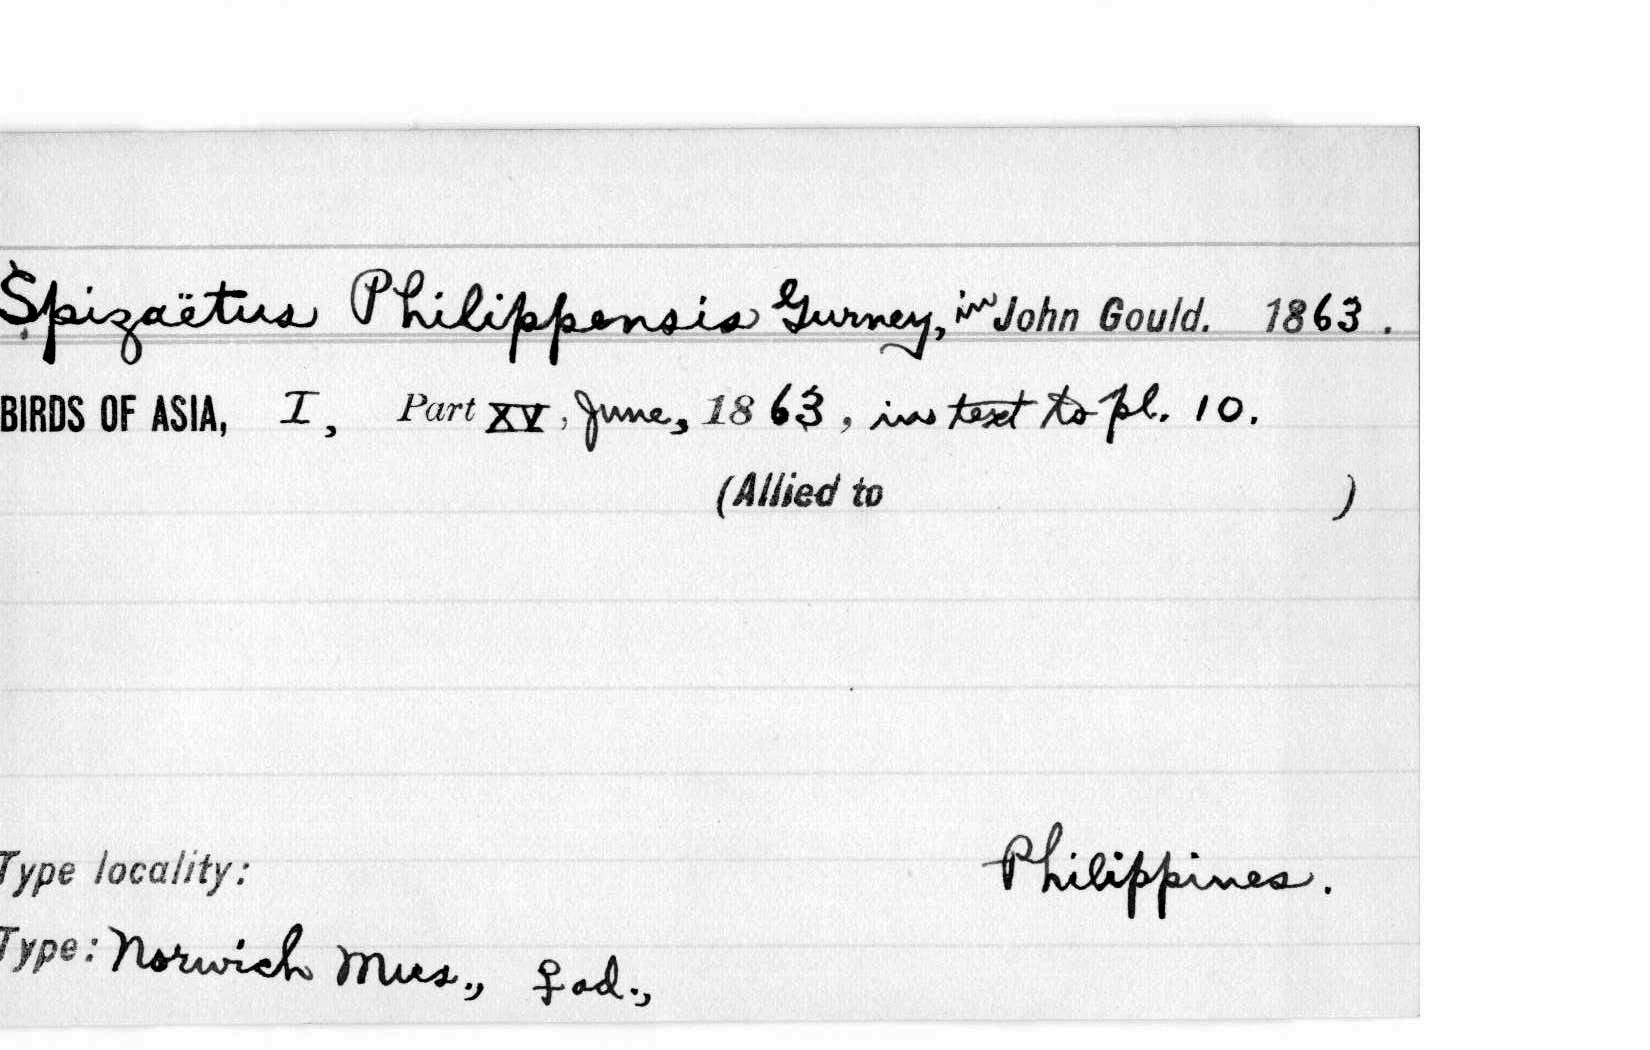 Spizaëtus Philippensis Gurney, in John Gould. 1863.
BIRDS OF ASIA, I, Part XV, June, 1863, in text to pl. 10.
(Allied to )
Type locality: Philippines.
Type: Norwich Mus., ♀ ad.,